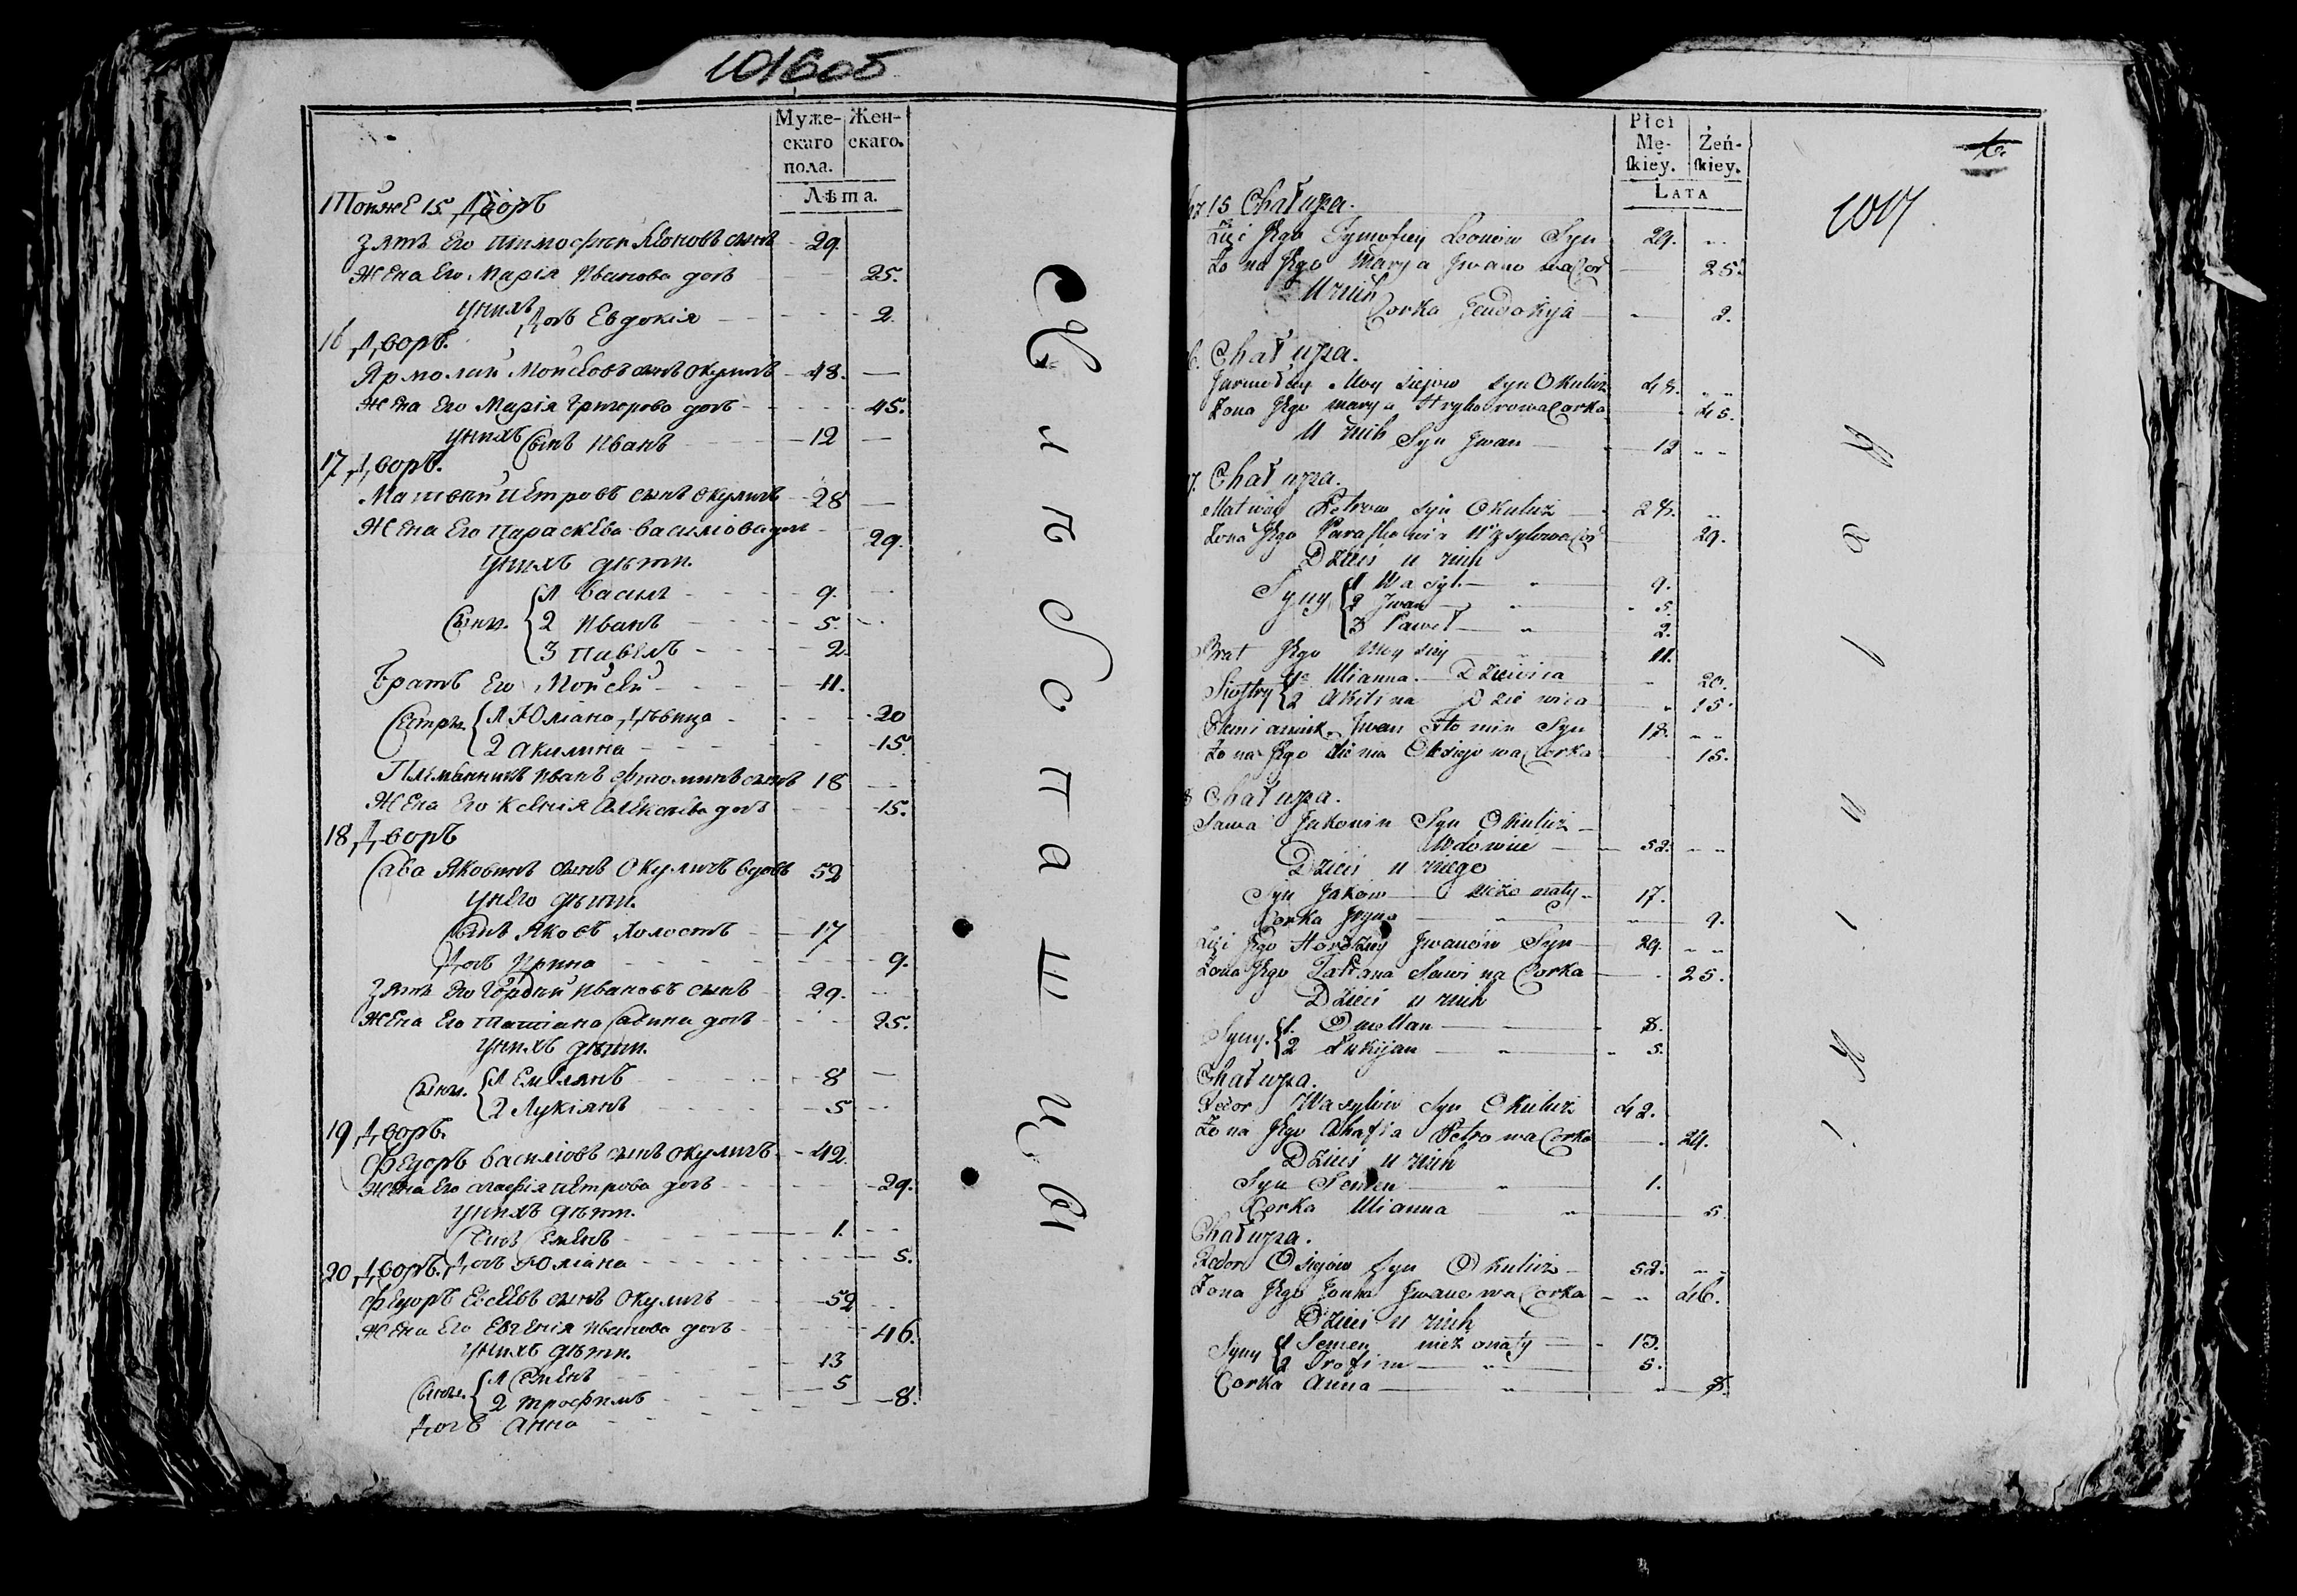 1016об
Муже-
скаго
пола.
Жен-
скаго.
Лѣта.
Тойже 15. Дворъ
Зять Его Тимофѣй Леоновъ сынъ 29
Жена Его Марія Иванова дочь 25.
у нихъ
Дочь Евдокія 2.
16 Дворъ.
Ярмолай Мойсѣовъ сынъ Окуличъ 48. —
Жена Его Марія Григорова дочь 45.
у нихъ Сынъ Иванъ 12 —
17 Дворъ.
Матвѣй Петровъ сынъ Окуличъ 28 —
Жена Его Параскева Василіова дочь 29.
у нихъ дѣти.
Сыни. 1 Василъ 9.
2 Иванъ 5.
3 Павелъ 2.
Братъ Его Мойсей 11.
Сестри. 1 Юліана Дѣвица 20
2 Акилина 15
Племѣнникъ Иванъ Фтоминъ сынъ 18
Жена Его Ксенія Алексѣева дочь 15.
18 Дворъ
Сава Яковинъ сынъ Окуличъ вдовъ 52
у него дѣти.
Сынъ Яковъ Холостъ 17
Дочь Ирина 9.
Зять Его Гордѣй Ивановъ сынъ 29.
Жена Его Татіана Савина дочь 25.
у нихъ дѣти.
Сыни. 1 Еміліянъ 8 —
2 Лукіянъ 5
19 Дворъ.
Федоръ Василіовъ сынъ Окуличъ 42.
Жена Его Агафія Петрова дочь 29.
у нихъ дѣти.
Сынъ Семенъ 1.
Дочь Юліана 5.
20 Дворъ.
Федоръ Евсеевъ сынъ Окуличъ 52
Жена Его Евгенія Иванова дочь 46.
у нихъ дѣти.
Сыны. 1 Семенъ 13
2 Трофимъ 5
Дочь Анна 8.
Płci
Mę-
skiey.
Żeń-
skiey.
LATA
1017
15 Chałupa.
Zięć Jego Tymofiey Leonów Syn 29.
Żona Jego Marya Jwanowa Cor 25.
U nich
Corka Jewdokija 2.
6. Chałupa.
Jarmołay Moysiejow Syn Okulicz 48.
Żona Jego Marya Hryhorowa Corka 45.
U nich Syn Jwan 12
7. Chałupa.
Matwiey Petrow syn Okulicz 28.
Żona Jego Paraskewia Wasylowa Cor 29.
Dzieci u nich
Syny 1 Wasyl 9.
2 Jwan 5.
3 Paweł 2.
Brat Jego Moysiey 11.
Siostry 1 Ulianna Dziewica 20.
2 Akilina Dziewica 15.
Plemiannik Jwan Ftomin Syn 18.
Żona Jego Xienia Olexiejowa Corka 15.
8 Chałupa.
Sawa Jakowin Syn Okulicz
Wdowiec 52.
Dzieci u niego
Syn Jakow nieżonaty 17.
Corka Jryna 9.
Zięć Jego Hordziey Jwanów Syn 29.
Żona Jego Tatiana Sawina Corka 25.
Dzieci u nich
Syny. 1. Omellan 8.
2 Łukijan 5.
Chałupa.
Fedor Wasylów Syn Okulicz 42.
Żona Jego Ahafia Petrowa Corka 29.
Dzieci u nich
Syn Semen 1.
Corka Ulianna 5.
Chałupa.
Fedor Osiejów Syn Okulicz 52.
Żona Jego Jouha Jwanowa Corka 46.
Dzieci u nich
Syny 1 Semen nieżonaty 13.
2 Trofim 5.
Corka Anna 8.